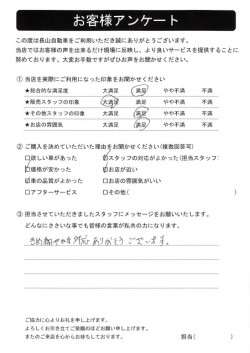 お客様アンケート
この度は長山自動車をご利用いただき誠にありがとうございます。
当店ではお客様の声を出来るだけ現場に反映し、より良いサービスを提供することに
努めております。大変お手数ですがぜひお声をお聞かせください。
① 当店を実際にご利用になった印象をお聞かせください
★総合的な満足度 大満足 満足 やや不満 不満
★販売スタッフの印象 大満足 満足 やや不満 不満
★その他スタッフの印象 大満足 満足 やや不満 不満
★お店の雰囲気 大満足 満足 やや不満 不満
② ご購入を決めていただいた理由をお聞かせください(複数回答可)
□欲しい車があった □スタッフの対応がよかった(担当スタッフ:
□価格が安かった □お店が近い
□車の品質がよかった □お店の雰囲気がいい
□アフターサービス □その他( )
③ 担当させていただきましたスタッフにメッセージをお願いいたします。
どんなにささいな事でも皆様の言葉が私共の力になります。
きめ細やかな対応ありがとうございます。
ご協力に心よりお礼を申し上げます。
よろしくお引き立てご愛顧のほどお願い申し上げます。
またのご来店を心からお待ちしております。 担当( )